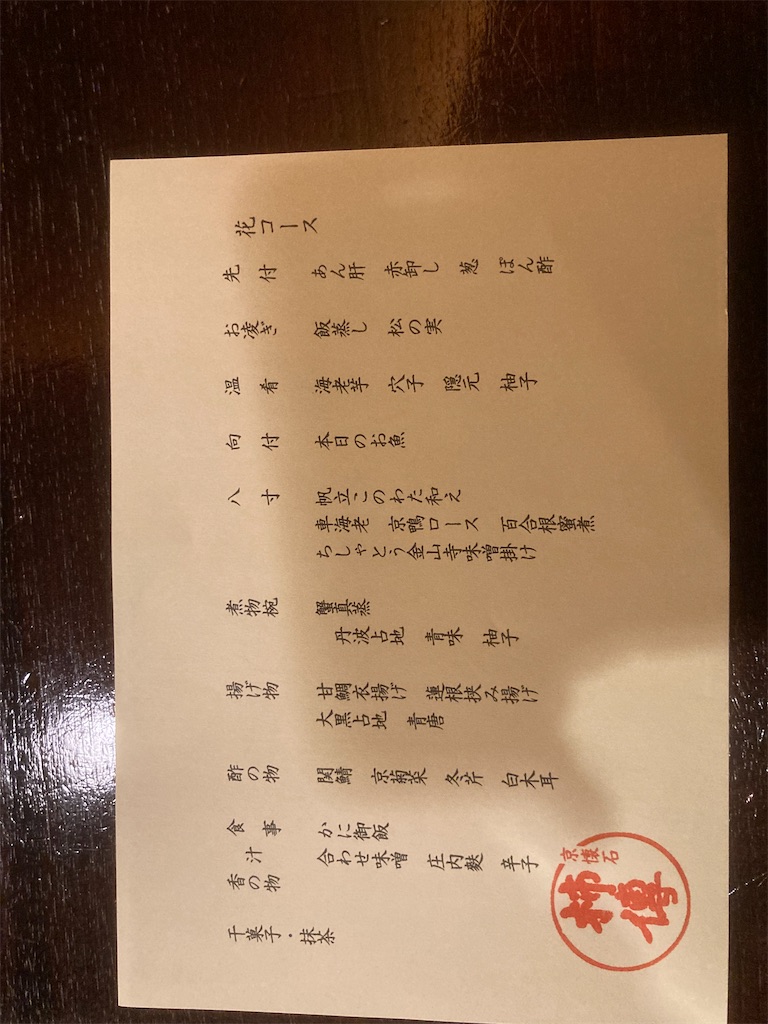 花コース
先付 あん肝 赤卸し 葱 ぽん酢
お凌ぎ 飯蒸し 松の実
温肴 海老芋 穴子 隠元 柚子
向付 本日のお魚
八寸 帆立このわた和え
車海老 京鴨ロース 百合根蜜煮
ちしゃとう金山寺味噌掛け
煮物椀 蟹真蒸
丹波占地 青味 柚子
揚げ物 甘鯛衣揚げ 蓮根挟み揚げ
大黒占地 青唐
酢の物 関鯖 京菊菜 冬芹 白木耳
食事 かに御飯
汁 合わせ味噌 庄内麩 辛子
香の物
干菓子・抹茶
京懐石
柿傳